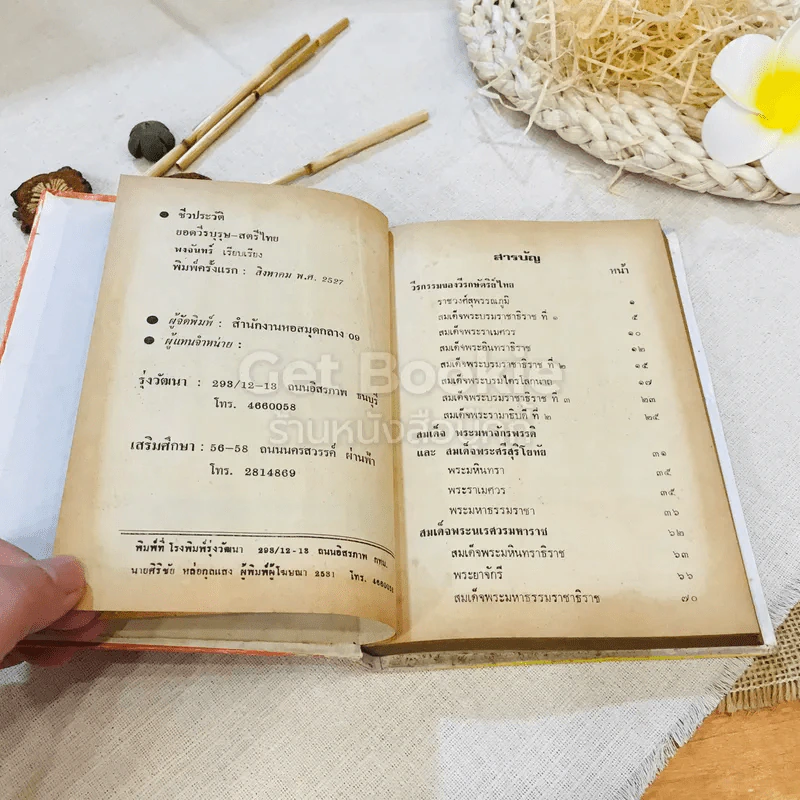 ● ชีวประวัติ
ยอดวีรบุรุษ-สตรีไทย
พงจันทร์ เรียบเรียง
พิมพ์ครั้งแรก : สิงหาคม พ.ศ. 2527
● ผู้จัดพิมพ์ : สำนักงานหอสมุดกลาง 09
● ผู้แทนจำหน่าย :
รุ่งวัฒนา : 293/12-13 ถนนอิสรภาพ ธนบุรี
โทร. 4660058
เสริมศึกษา : 56-58 ถนนนครสวรรค์ ผ่านฟ้า
โทร. 2814869
พิมพ์ที่ โรงพิมพ์รุ่งวัฒนา 293/12-13 ถนนอิสรภาพ กทม.
นายศิริชัย หล่อกุลแสง ผู้พิมพ์ผู้โฆษณา 2531 โทร. 4660058
สารบัญ
หน้า
วีรกรรมของวีรกษัตริย์ไทย
ราชวงศ์สุพรรณภูมิ ๑
สมเด็จพระบรมราชาธิราช ที่ ๑ ๕
สมเด็จพระราเมศวร ๑๐
สมเด็จพระอินทราธิราช ๑๒
สมเด็จพระบรมราชาธิราช ที่ ๒ ๑๕
สมเด็จพระบรมไตรโลกนาถ ๑๗
สมเด็จพระบรมราชาธิราช ที่ ๓ ๒๓
สมเด็จพระรามาธิบดี ที่ ๒ ๒๕
สมเด็จ พระมหาจักรพรรดิ
และ สมเด็จพระศรีสุริโยทัย ๓๑
พระมหินทรา ๓๕
พระราเมศวร ๓๕
พระมหาธรรมราชา ๓๖
สมเด็จพระนเรศวรมหาราช ๖๒
สมเด็จพระมหินทราธิราช ๖๓
พระยาจักรี ๖๖
สมเด็จพระมหาธรรมราชาธิราช ๗๐
Get Bookie
ร้านหนังสือเก่า